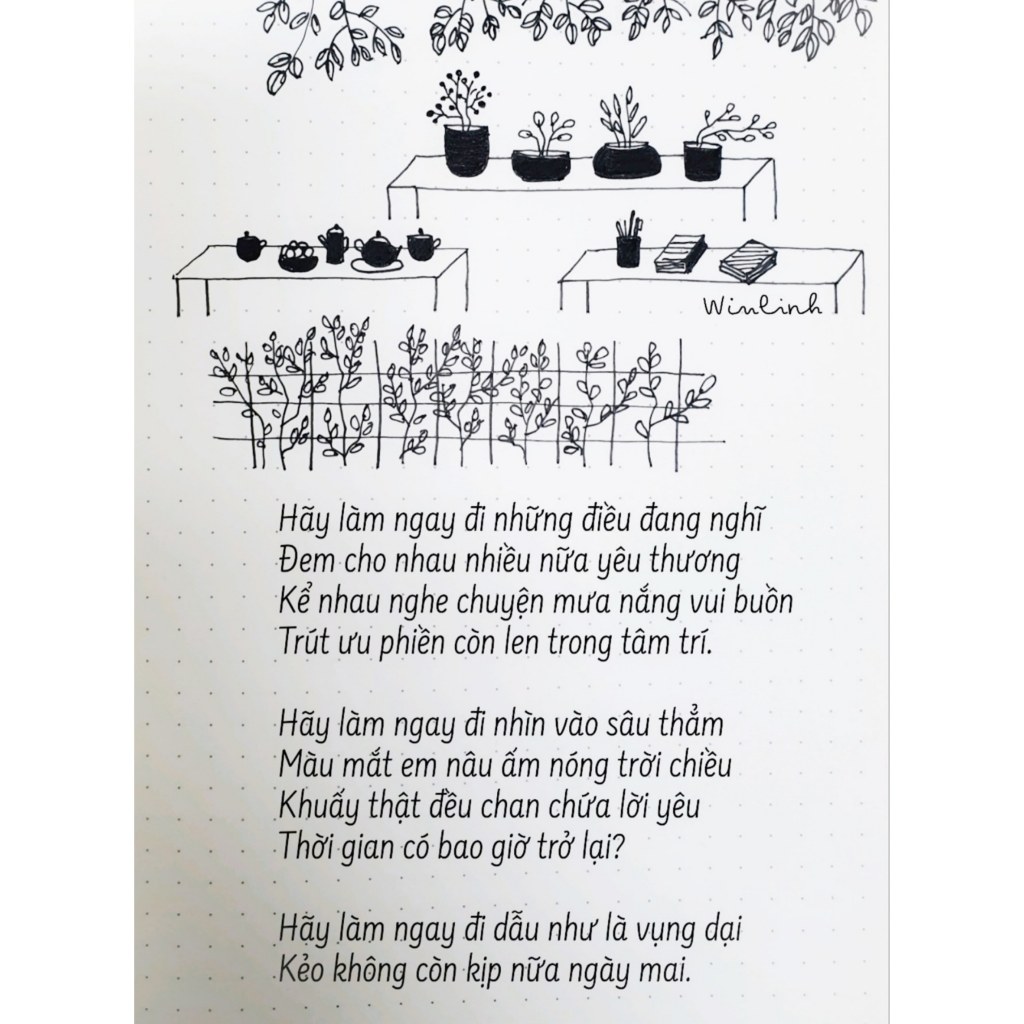 Winlinh
Hãy làm ngay đi những điều đang nghĩ
Đem cho nhau nhiều nữa yêu thương
Kể nhau nghe chuyện mưa nắng vui buồn
Trút ưu phiền còn len trong tâm trí.
Hãy làm ngay đi nhìn vào sâu thẳm
Màu mắt em nâu ấm nóng trời chiều
Khuấy thật đều chan chứa lời yêu
Thời gian có bao giờ trở lại?
Hãy làm ngay đi dẫu như là vụng dại
Kẻo không còn kịp nữa ngày mai.